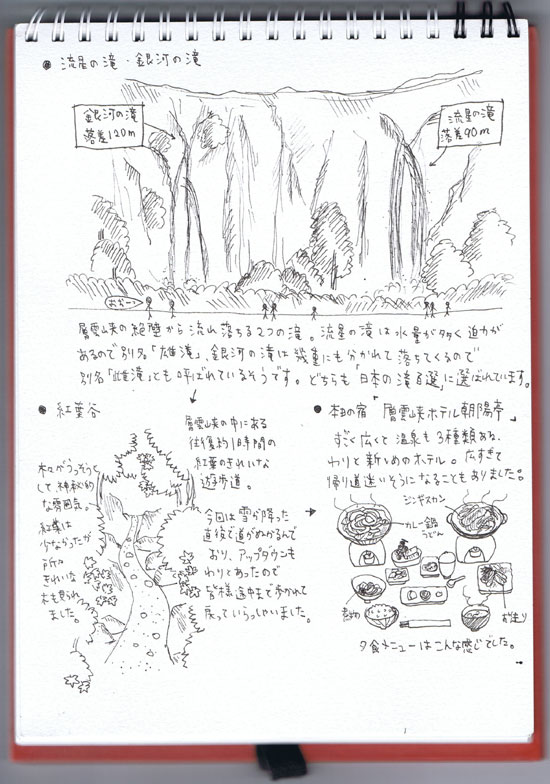 ● 流星の滝・銀河の滝
銀河の滝
落差120m
流星の滝
落差90m
おおー!
層雲峡の絶壁から流れ落ちる2つの滝。流星の滝は水量が多く迫力が
あるので別名「雄滝」、銀河の滝は幾重にも分かれて落ちてくるので
別名「雌滝」とも呼ばれているそうです。どちらも「日本の滝百選」に選ばれています。
● 紅葉谷
層雲峡の中にある
往復約1時間の
紅葉のきれいな
遊歩道。
木々がうっそうと
して神秘的
な雰囲気。
紅葉は
少なかったが
所々
きれいな
木も見られ
ました。
今回は雪が降った
直後で道がぬかるんで
おり、アップダウンも
わりとあったので
皆様途中まで歩かれて
戻っていらっしゃいました。
● 本日の宿「層雲峡ホテル朝陽亭」
すごく広くて温泉も3種類ある、
わりと新しめのホテル。広すぎて
帰り道迷いそうになることもありました。
ジンギスカン
カレー鍋
うどん
お造り
夕食メニューはこんな感じでした。